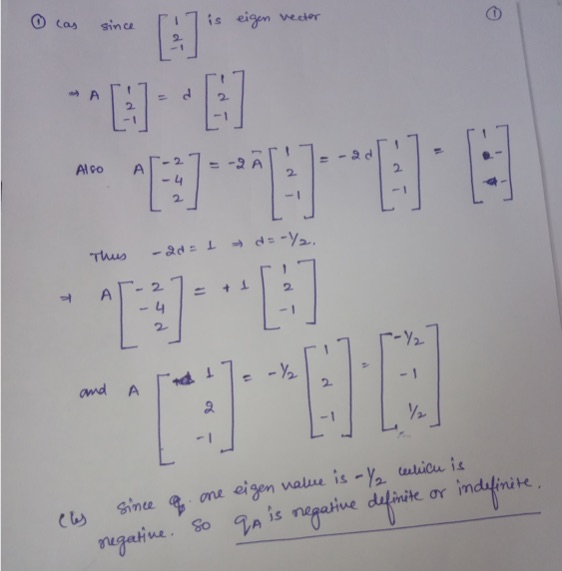 ① (a) since [1 2 -1] is eigen vector ①
⇒ A [1 2 -1] = d [1 2 -1]
Also A [-2 -4 2] = -2 A [1 2 -1] = -2d [1 2 -1] = [1 - -]
Thus -2d = 1 ⇒ d = -1/2.
⇒ A [-2 -4 2] = +1 [1 2 -1]
and A [1 2 -1] = -1/2 [1 2 -1] = [-1/2 -1 1/2]
(b) since one eigen value is -1/2 which is
negative. so qA is negative definite or indefinite.